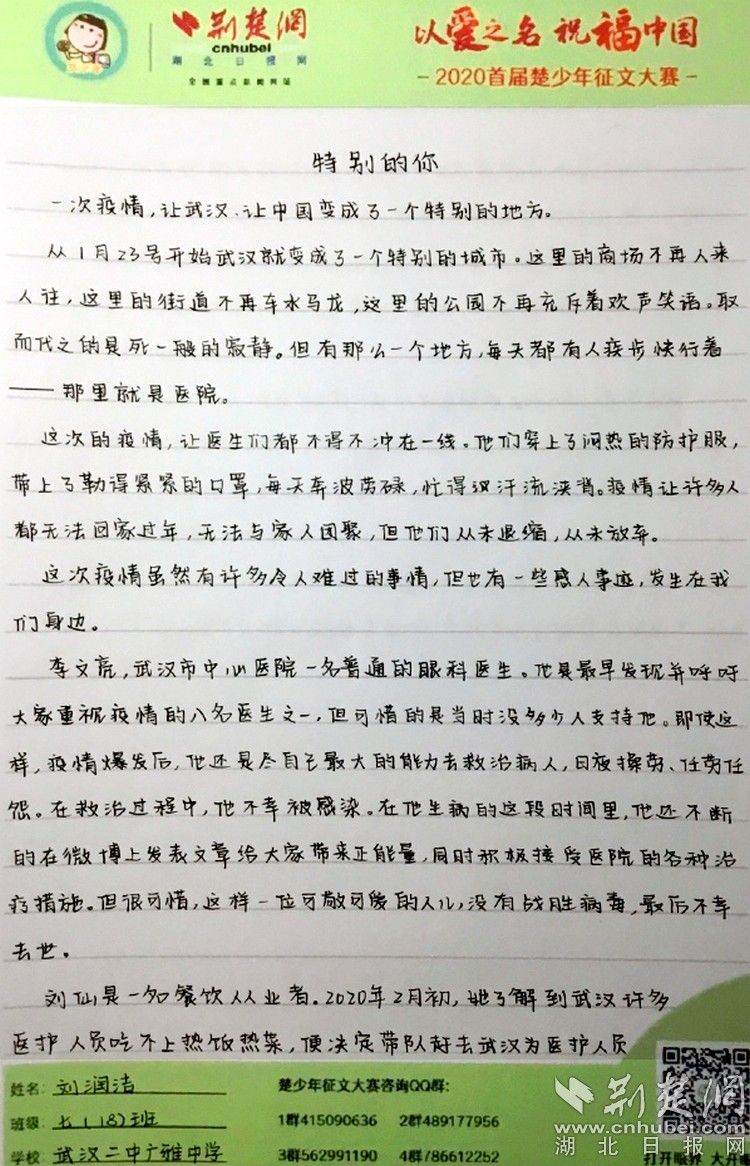 荆楚网
cnhubei
湖北日报网
全国重点新闻网站
以爱之名 祝福中国
-2020首届楚少年征文大赛-
特别的你
一次疫情,让武汉、让中国变成了一个特别的地方。
从1月23号开始武汉就变成了一个特别的城市。这里的商场不再人来
人往,这里的街道不再车水马龙,这里的公园不再充斥着欢声笑语。取
而代之的是死一般的寂静。但有那么一个地方,每天都有人疾步快行着
——那里就是医院。
这次的疫情,让医生们都不得不冲在一线。他们穿上了闷热的防护服,
带上了勒得紧紧的口罩,每天奔波劳碌,忙得汉汗流浃背。疫情让许多人
都无法回家过年,无法与家人团聚,但他们从未退缩,从未放弃。
这次疫情虽然有许多令人难过的事情,但也有一些感人事迹,发生在我
们身边。
李文亮,武汉市中心医院一名普通的眼科医生。他是最早发现并呼吁
大家重视疫情的八名医生之一,但可惜的是当时没多少人支持他。即使这
样,疫情爆发后,他还是尽自己最大的能力去救治病人,日夜操劳、任劳任
怨。在救治过程中,他不幸被感染。在他生病的这段时间里,他还不断
的在微博上发表文章给大家带来正能量,同时积极接受医院的各种治
疗措施。但很可惜,这样一位可敬可爱的人儿,没有战胜病毒,最后不幸
去世。
刘仙是一名餐饮从业者。2020年2月初,她了解到武汉许多
医护人员吃不上热饭热菜,便决定带队赶去武汉为医护人员
姓名:刘润洁
班级:七(18)班
学校:武汉二中广雅中学
楚少年征文大赛咨询QQ群:
1群415090636 2群489177956
3群562991190 4群786612252
荆楚网
www.cnhubei.com
湖北日报网
打开眼界 大开